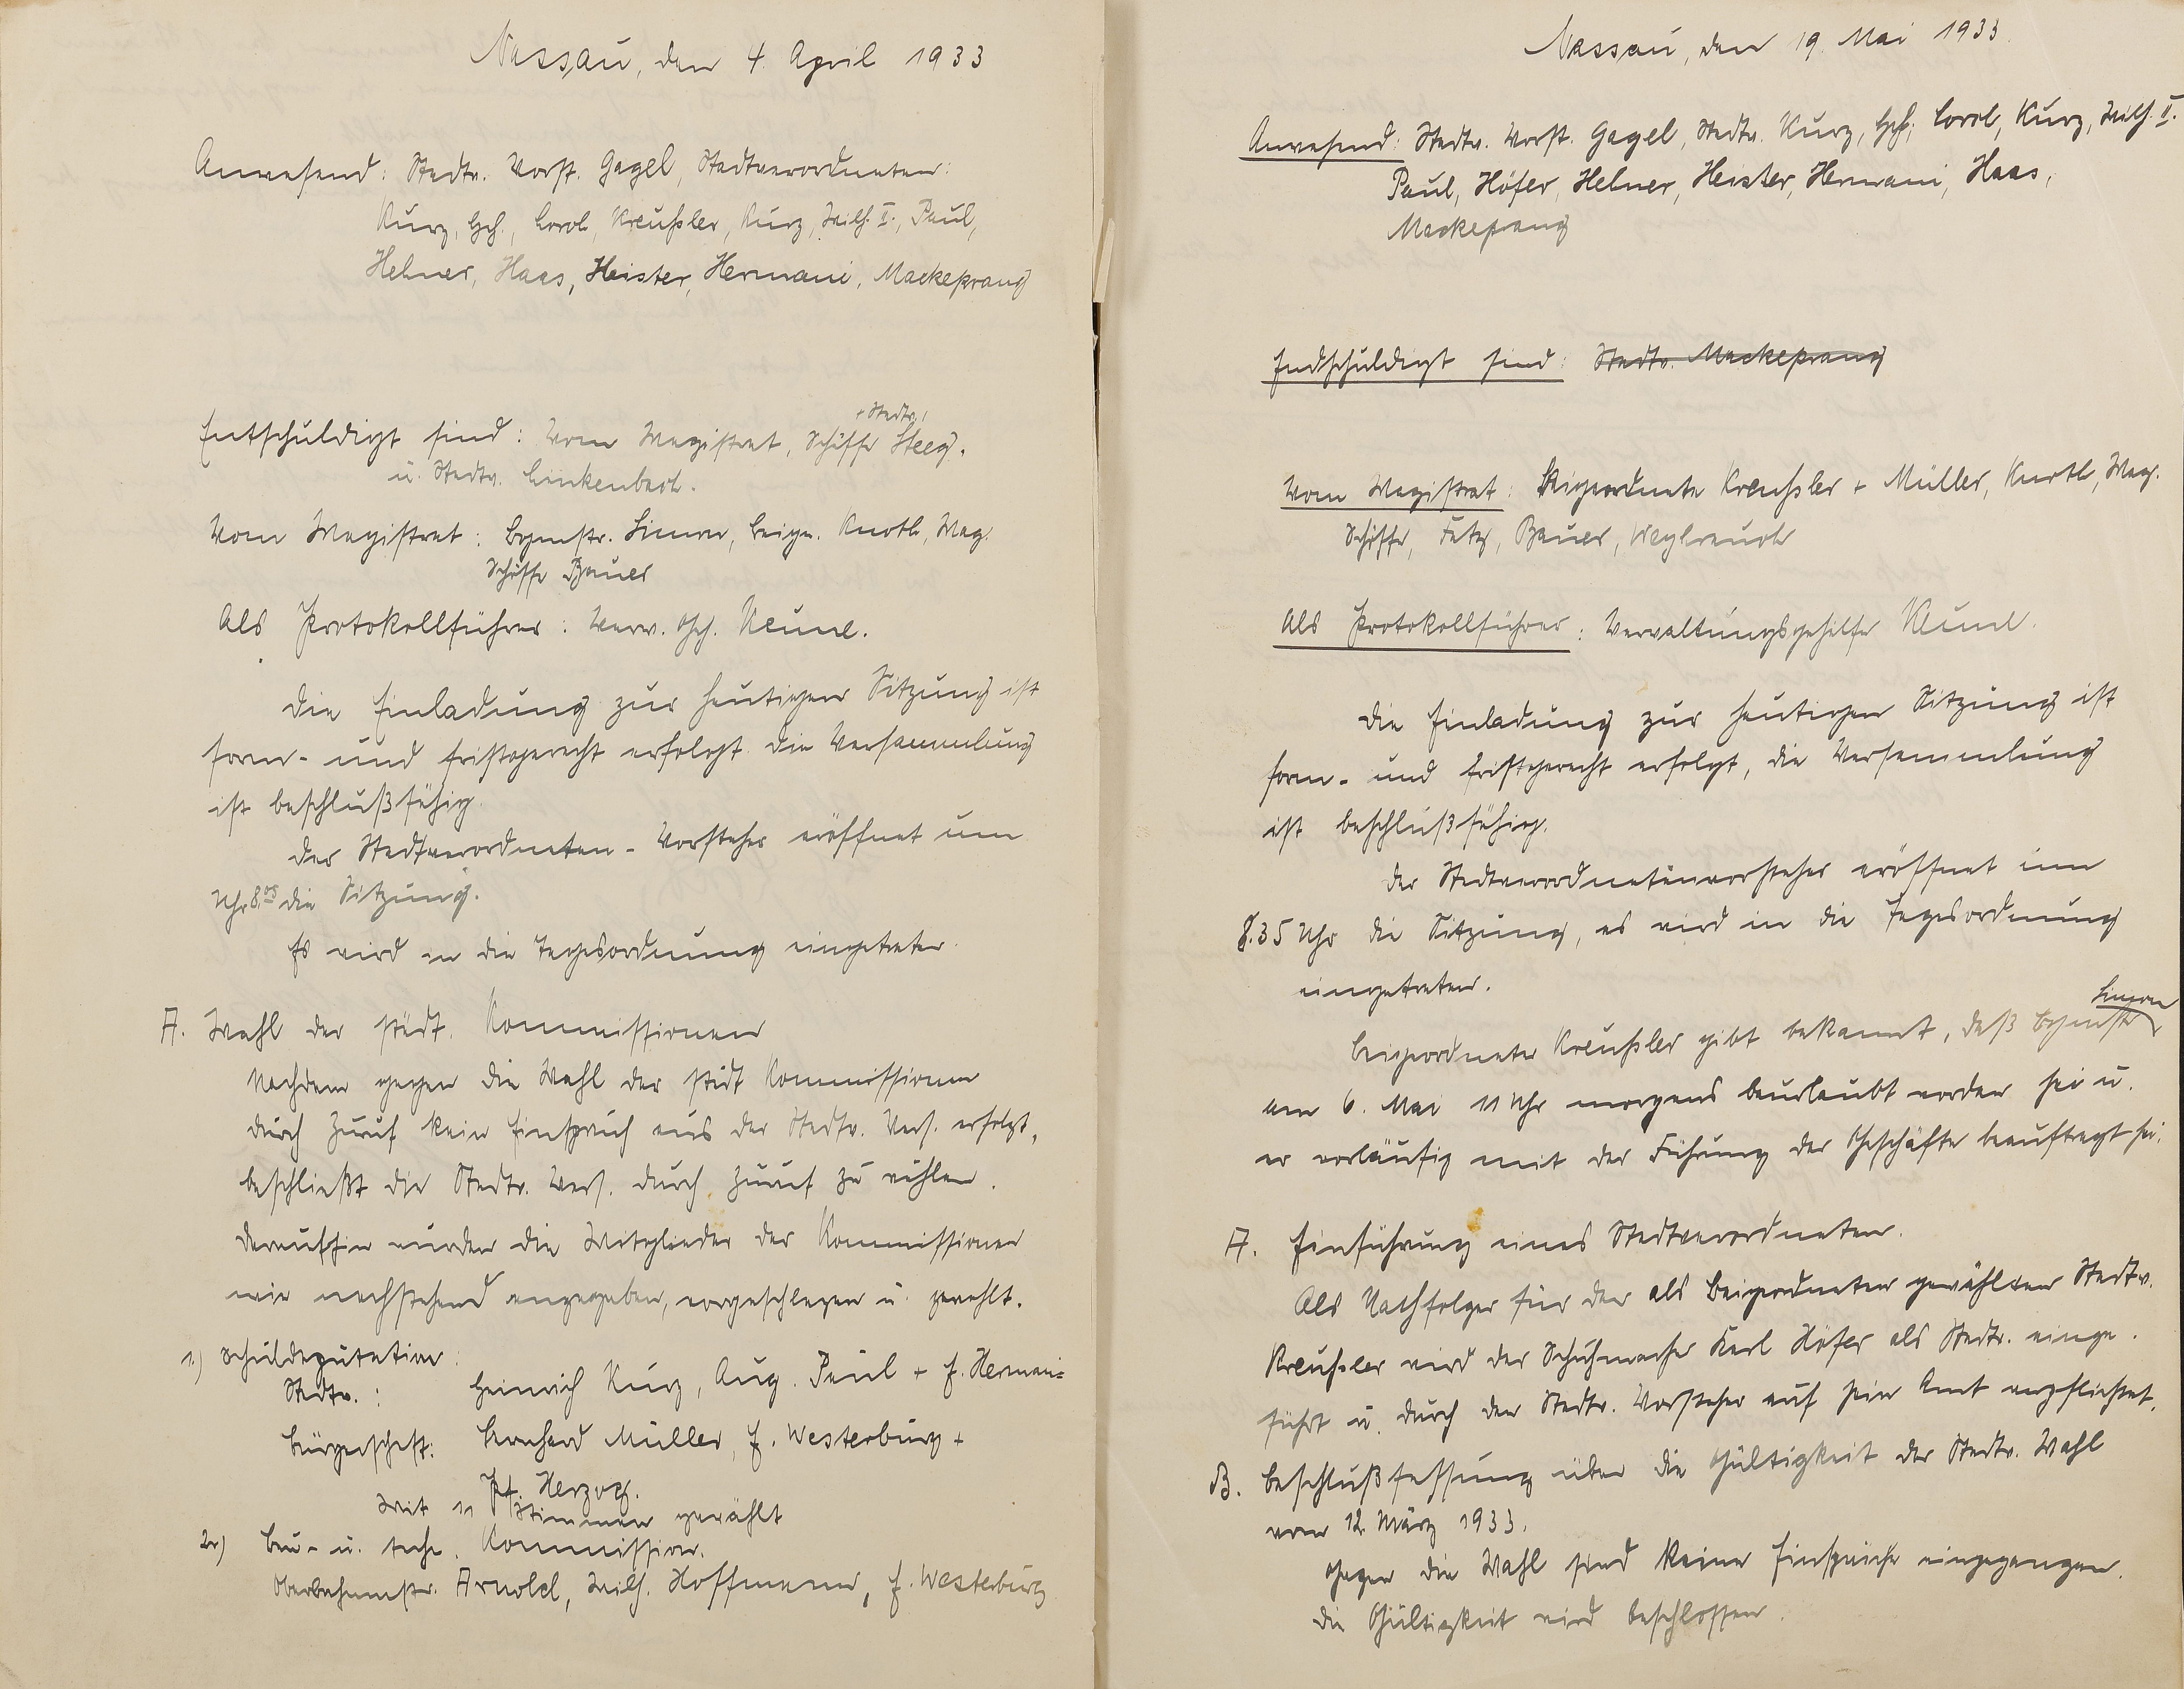 Nassau, den 4. April 1933
Anwesend: Stadtv. Vorst. Gagel, Stadtverordneten:
Kurz, Hch., Koch, Kreußler, Kurz, Wilh. II., Paul,
Hehner, Haas, Heister, Hermani, Mackeprang
Entschuldigt sind: Vom Magistrat, Schöffe Steeg.
+ Stadtv.
u. Stadtv. Linkenbach.
Vom Magistrat: Bgmstr. Simon, Beign. Knoth, Mag.
Schöffe Bauer
Als Protokollführer: Verw. Geh. Keune.
Die Einladung zur heutigen Sitzung ist
form- und fristgerecht erfolgt. Die Versammlung
ist beschlußfähig.
Der Stadtverordneten-Vorsteher eröffnet um
Uhr 8. die Sitzung.
Es wird in die Tagesordnung eingetreten.
A. Wahl der städt. Kommissionen
Nachdem gegen die Wahl der städt Kommissionen
durch Zuruf kein Einspruch aus der Stadtv. Vers. erfolgt,
beschließt die Stadtv. Vers. durch Zuruf zu wählen.
Daraufhin wurden die Mitglieder der Kommissionen
wie nachstehend angegeben, vorgeschlagen u. gewählt.
1.) Schuldeputation:
Stadtv.: Heinrich Kurz, Aug. Paul + E. Hermani
Bürgerschaft: Bernhard Müller, E. Westerburg +
Pf. Herzog.
Mit 11 Stimmen gewählt
2.) Bau- u. techn. Kommission.
Oberbahnmstr. Arnold, Wilh. Hoffmann, E. Westerburg
Nassau, den 19. Mai 1933.
Anwesend: Stadtv. Vorst. Gagel, Stadtv. Kurz, Hch, Koch, Kurz, Wilh. II.
Paul, Höfer, Hehner, Heister, Hermani, Haas,
Mackeprang
Endschuldigt sind: Stadtv. Mackeprang
Vom Magistrat: Beigeordnete Kreußler + Müller, Knoth, Mag.
Schöffe, Fetz, Bauer, Weyhrauch
Als Protokollführer: Verwaltungsgehilfe Keune.
Die Einladung zur heutigen Sitzung ist
form- und fristgerecht erfolgt, die Versammlung
ist beschlußfähig.
Der Stadtverordnetenvorsteher eröffnet um
8.35 Uhr die Sitzung, es wird in die Tagesordnung
eingetreten.
Beigeordneter Kreußler gibt bekannt, daß Bgmstr Simon
am 6. Mai 11 Uhr morgens beurlaubt worden sei u.
er vorläufig mit der Führung der Geschäfte beauftragt sei.
A. Einführung eines Stadtverordneten.
Als Nachfolger für den als Beigeordneten gewählten Stadtv.
Kreußler wird der Schuhmacher Karl Höfer als Stadtv. einge-
führt u. durch den Stadtv. Vorsteher auf sein Amt verpflichtet.
B. Beschlußfassung über die Gültigkeit der Stadtv. Wahl
vom 12. März 1933.
Gegen die Wahl sind keine Einsprüche eingegangen.
Die Gültigkeit wird beschlossen.